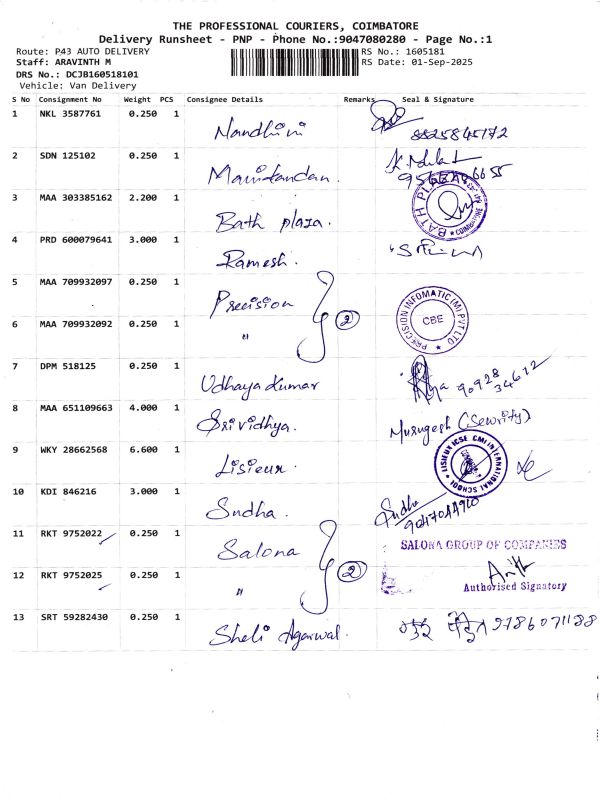 THE PROFESSIONAL COURIERS, COIMBATORE
Delivery Runsheet - PNP - Phone No.:9047080280 - Page No.:1
Route: P43 AUTO DELIVERY RS No.: 1605181
Staff: ARAVINTH M RS Date: 01-Sep-2025
DRS No.: DCJB160518101
Vehicle: Van Delivery
S No Consignment No Weight PCS Consignee Details Remarks Seal & Signature
1 NKL 3587761 0.250 1 Nandhini 8825845172
2 SDN 125102 0.250 1 Manikandan.
3 MAA 303385162 2.200 1 Bath plaza. BATH PLAZA COIMBATORE
4 PRD 600079641 3.000 1 Ramesh.
5 MAA 709932097 0.250 1 Precision 2 PRECISION INFOMATIC (M) PVT LTD CBE
6 MAA 709932092 0.250 1 "
7 DPM 518125 0.250 1 Udhayakumar 90928 34612
8 MAA 651109663 4.000 1 Srividhya. Murugesh (Security)
9 WKY 28662568 6.600 1 Lisieux. LISIEUX ICSE CMI INTERNATIONAL SCHOOL
10 KDI 846216 3.000 1 Sudha. Sudha
11 RKT 9752022 0.250 1 Salona 2 SALONA GROUP OF COMPANIES
12 RKT 9752025 0.250 1 " Authorised Signatory
13 SRT 59282430 0.250 1 Sheli Agarwal. 9786071188